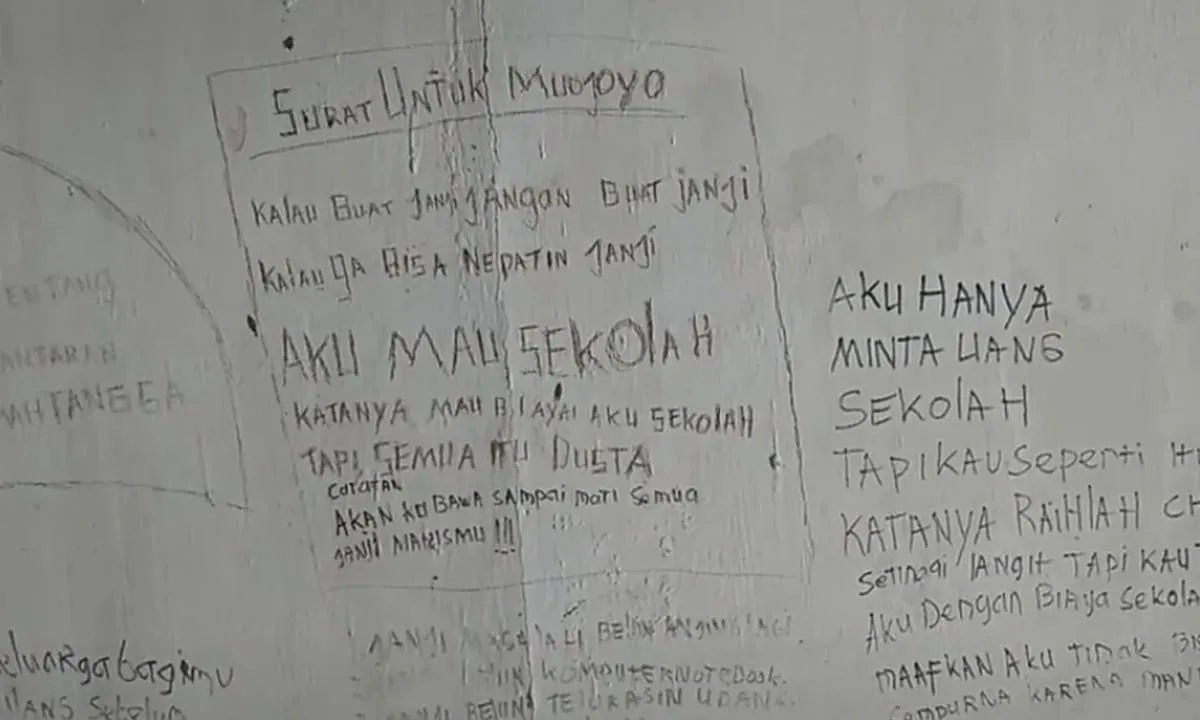 SURAT UNTUK MUOJOYO
KALAU BUAT JANJI JANGAN BUAT JANJI
KALAU GA BISA NEPATIN JANJI
AKU MAU SEKOLAH
KATANYA MAU BIAYAI AKU SEKOLAH
TAPI SEMUA ITU DUSTA
CATATAN
AKAN KU BAWA SAMPAI MATI SEMUA
JANJI MANISMU !!!
JANJI
KOMPUTER NOTEBOOK.
BELIIN TELUR ASIN UDANG
ENTANG
ANTARAN
AH TANGGA
eluarga bagimu
UANG Sebelum
AKU HANYA
MINTA UANG
SEKOLAH
TAPI KAU SEPERTI IT
KATANYA RAIHLAH CI
Setinggi LANGIT TAPI KAU
AKU DENGAN BIAYA Sekola
MAAFKAN AKU TIDAK BIS
SEMPURNA KARENA IMAN